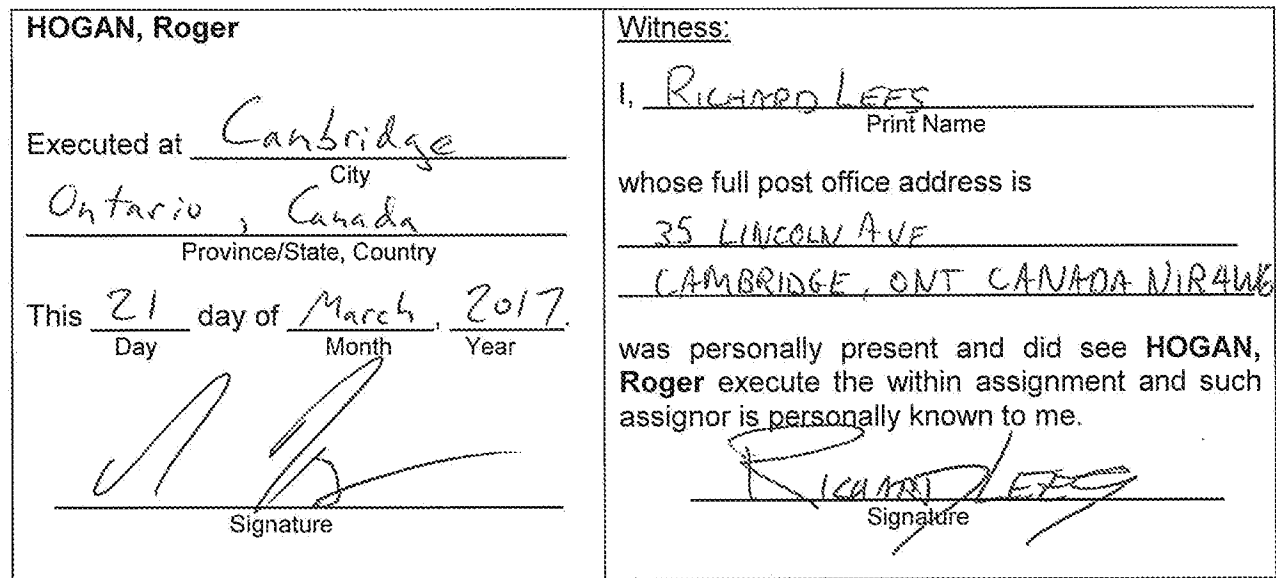 HOGAN, Roger
Executed at Cambridge
City
Ontario, Canada
Province/State, Country
This 21 day of March, 2017.
Day Month Year
Signature
Witness:
I, RICHARD LEES
Print Name
whose full post office address is
35 LINCOLN AVE
CAMBRIDGE, ONT CANADA N1R4W6
was personally present and did see HOGAN,
Roger execute the within assignment and such
assignor is personally known to me.
RICHARD LEES
Signature